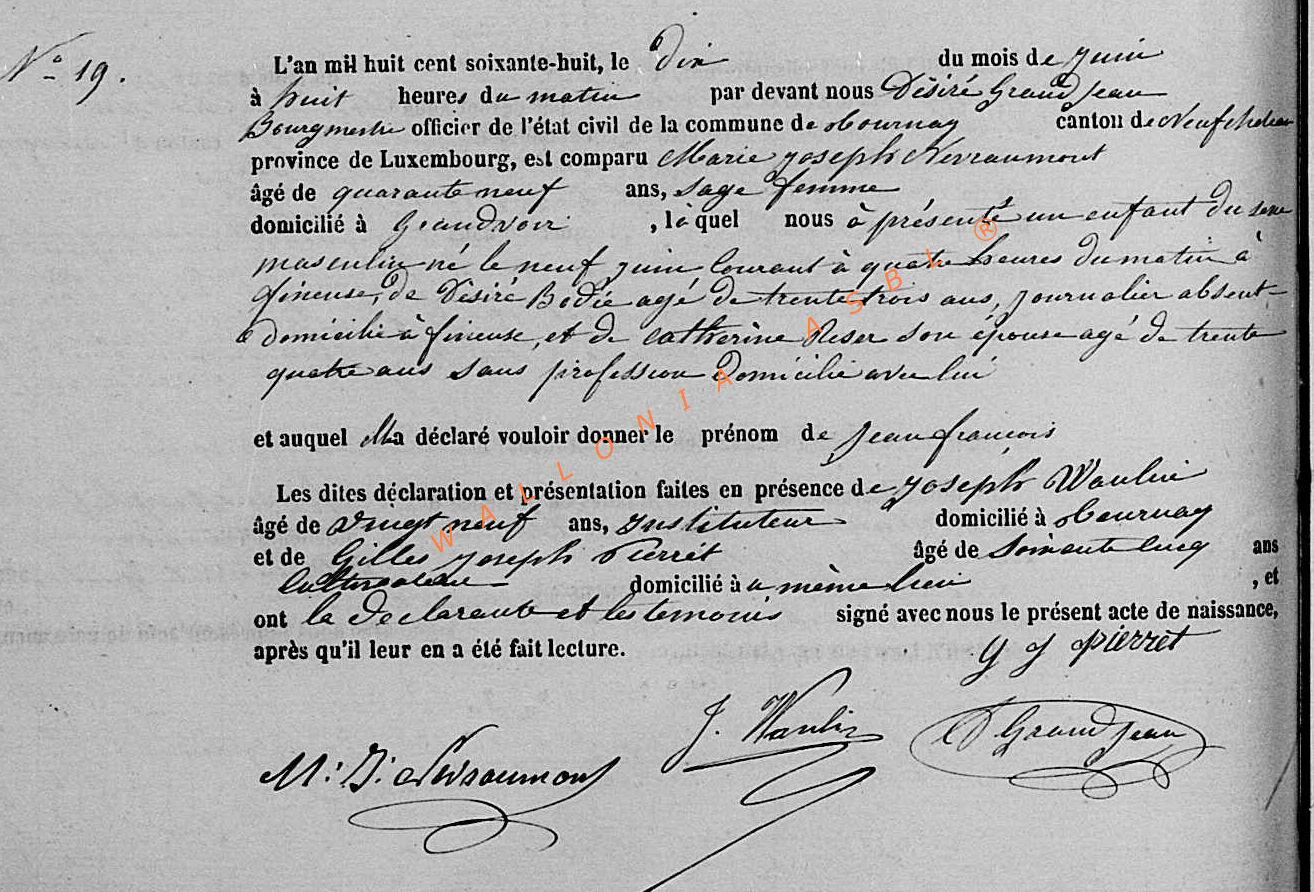 N° 19.
L'an mil huit cent soixante-huit, le dix du mois de juin
à huit heures du matin par devant nous Désiré Grandjean
Bourgmestre officier de l'état civil de la commune de Tournay canton de Neufchateau
province de Luxembourg, est comparu Marie Joseph Nevraumont
âgé de quarante neuf ans, sage femme
domicilié à Grandvoir, laquel nous à présenté un enfant du sexe
masculin né le neuf juin courant à quatre heures du matin à
fineuse, de Désiré Bodie agé de trente trois ans, journalier absent
domicilié à fineuse, et de catherine Reser son épouse agé de trente
quatre ans sans profession domicilié avec lui
et auquel elle a déclaré vouloir donner le prénom de jean françois
Les dites déclaration et présentation faites en présence de joseph Waulin
âgé de vingt neuf ans, instituteur domicilié à Tournay
et de Gilles joseph Pierrét âgé de soixante cinq ans
Cultivateur domicilié à a même lieu, et
ont la declarante et les temoins signé avec nous le présent acte de naissance,
après qu'il leur en a été fait lecture. G J pierret
M: J: Nevraumont J. Waulin D Grandjean
WALLONIA ASBL ®